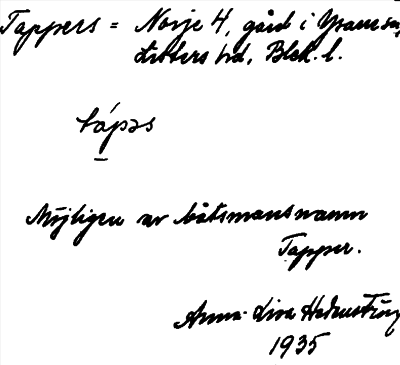 Tappers = Norje 4, gård i Ysane sn,
Listers hd, Blek. l.
tápəs
Möjligen av båtsmansnamn
Tapper.
Anna-Lisa
1935